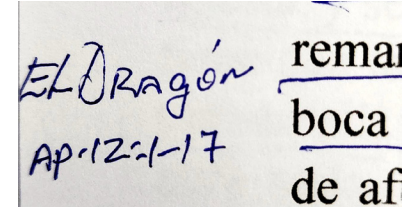 EL DRagón
AP.12:1-17
remar
boca
de af